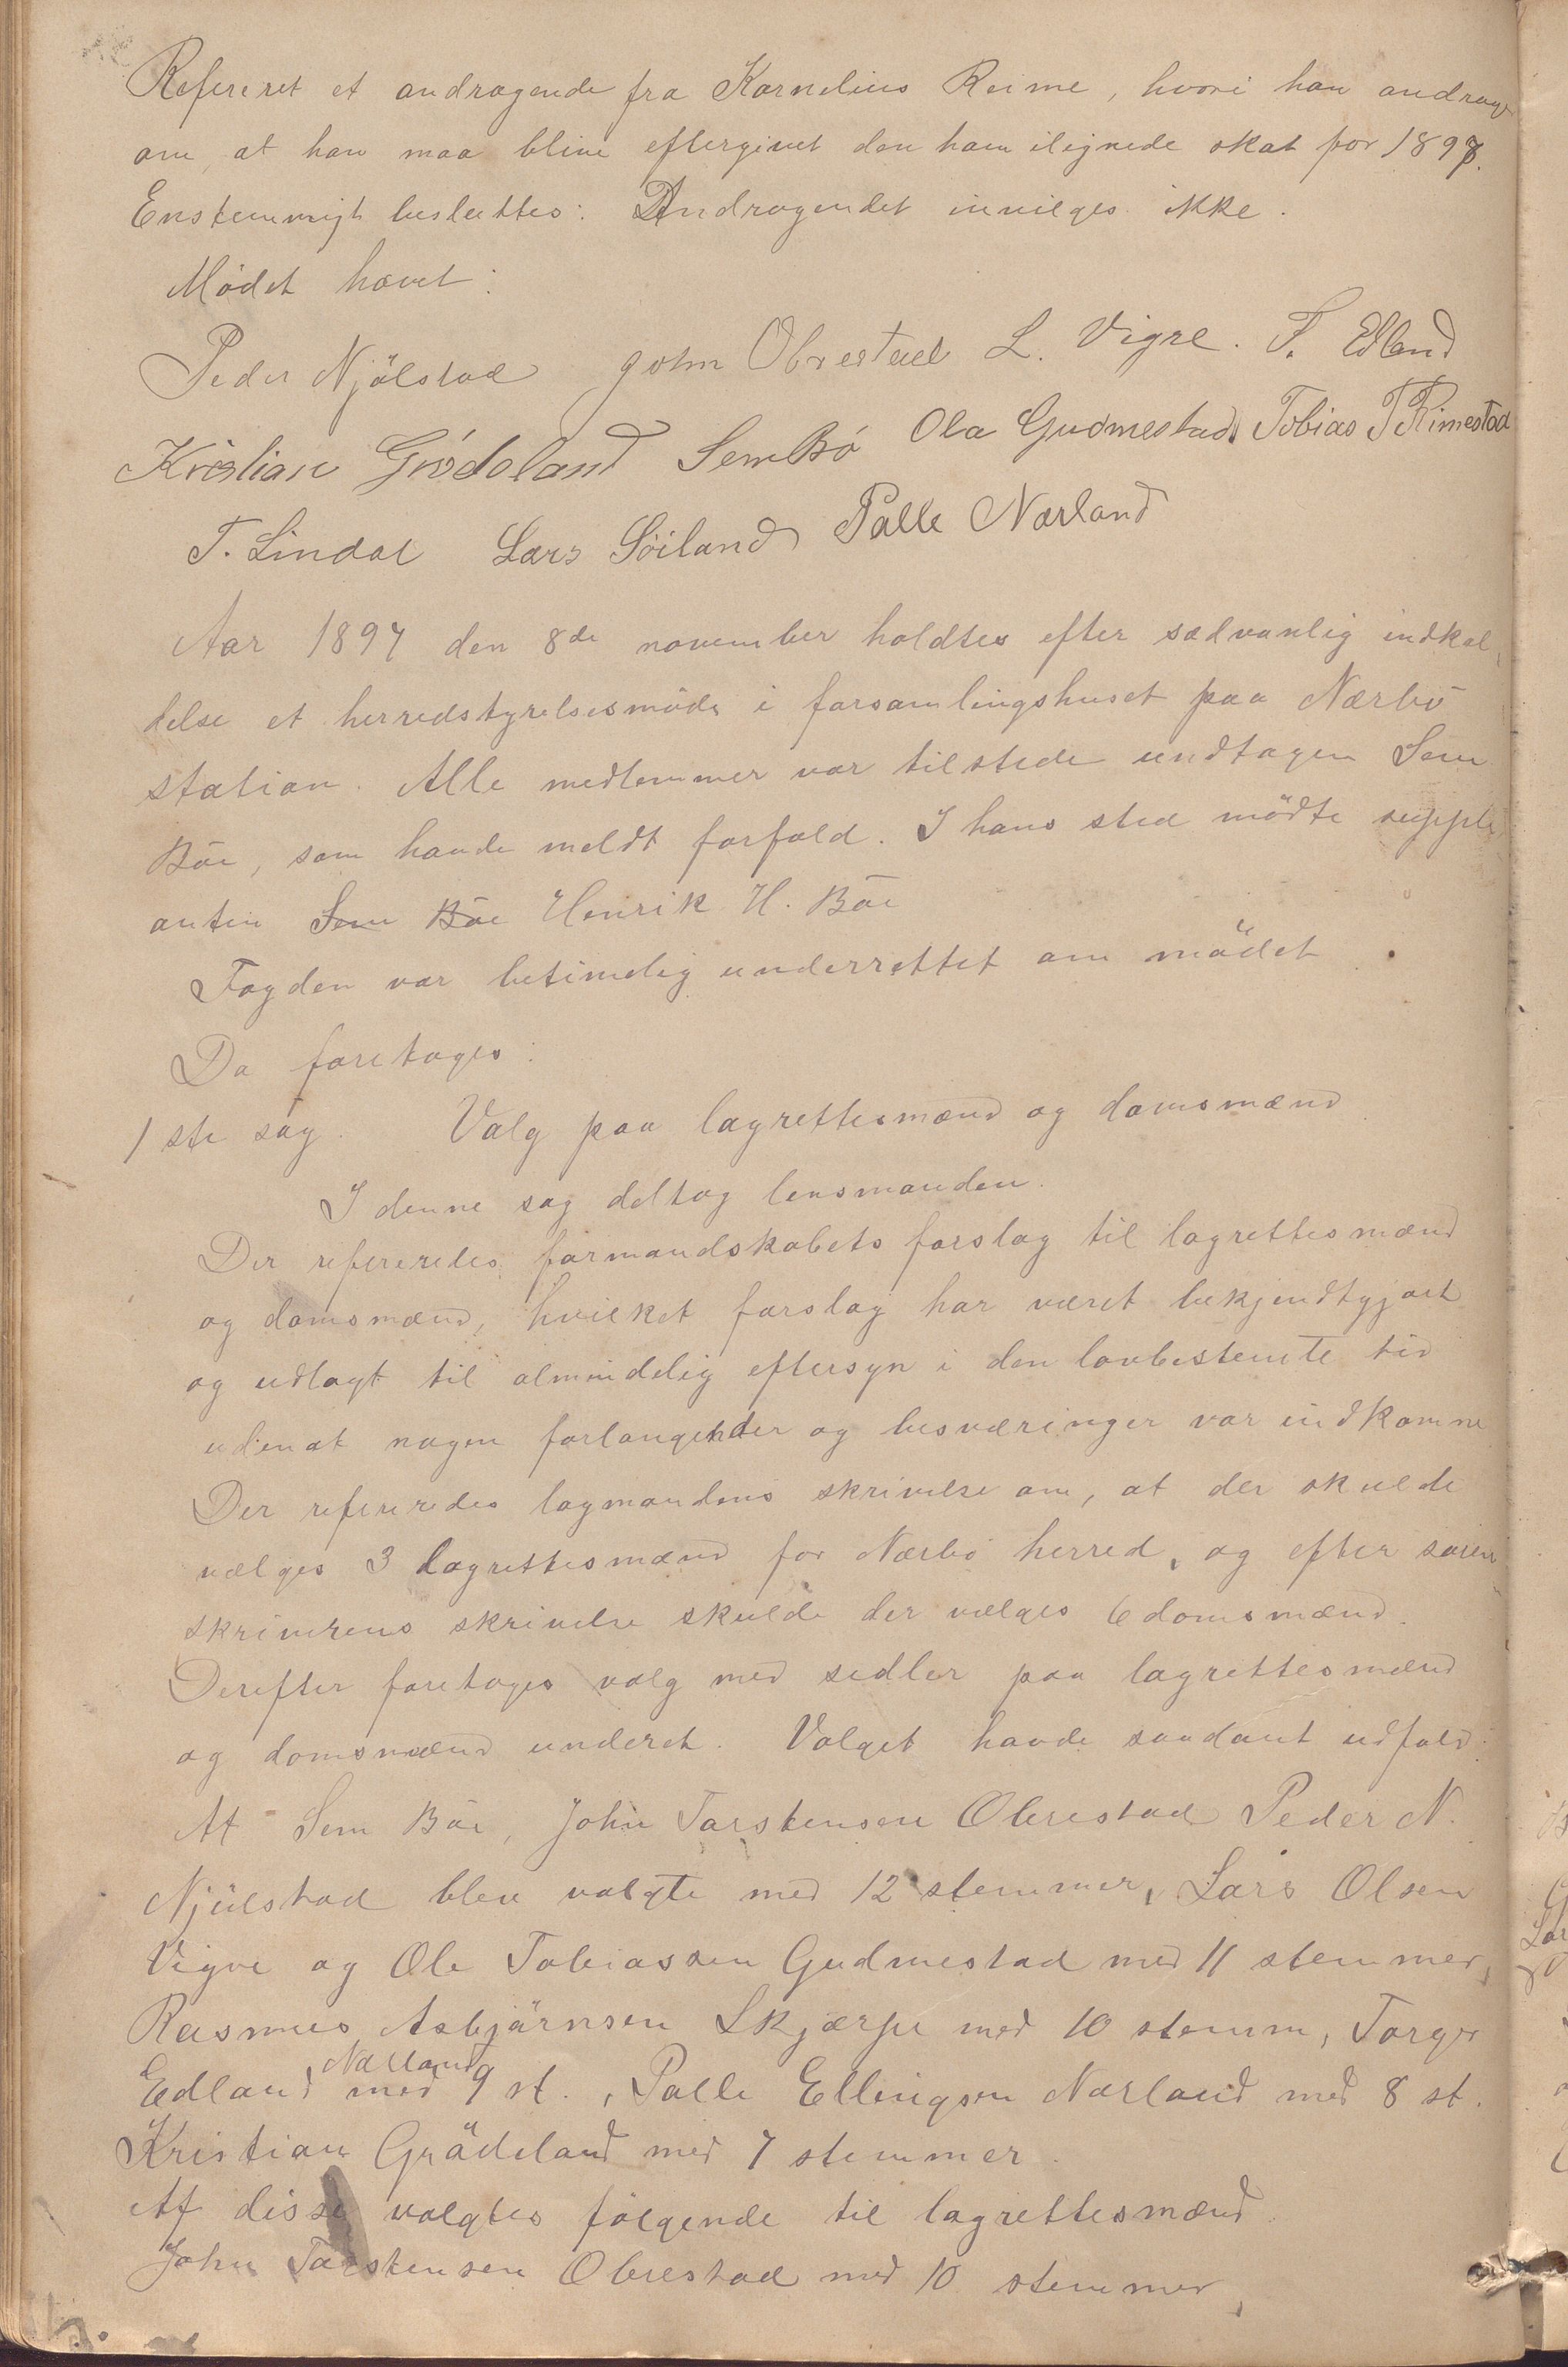 Refereret et andragende fra Kornelius Reime, hvori han andrager
om, at han maa blive eftergivet den ham ilignede skat for 1897.
Enstemmigt besluttes: Andragendet invilges ikke.
Mödet hævet:
Peder Njölstad John Obrestad L. Vigre. T. Edland
Kristian Grödeland Sem Bö Ola Gudmestad Tobias T Rimestad
T. Lindal Lars Söiland Palle Nærland
Aar 1897 den 8de november holdtes efter sædvanlig indkal,
delse et herredstyrelsesmöde i forsamlingshuset paa Nærbö
station. Alle medlemmer var tilstede undtagen Sem
Böe, som havde meldt forfald. I hans sted mödte suppli
anten Sem Böe Henrik H. Böe
Fogden var betimelig underrettet om mödet.
Da foretoges:
1ste sag. Valg paa lagrettesmænd og domsmænd
I denne sag deltog lensmanden.
Der refereredes formandskabets forslag til lagrettesmænd
og domsmænd, hvilket forslag har været bekjendtgjort
og udlagt til almindelig eftersyn i den lovbestemte tid
udenat nogen forlangender og besværinger var indkomne
Der refereredes lagmandens skrivelse om, at der skulde
vælges 3 lagrettesmænd for Nærbö herred, og efter soren
skriverens skrivelse skulde der vælges 6 domsmænd.
Derefter foretoges valg med sedler paa lagrettesmænd
og domsmænd underet. Valget havde saadant udfald:
At Sem Böe, John Torstensen Obrestad Peder N.
Njölstad blev valgte med 12 stemmer, Lars Olsen
Vigre og Ole Tobiassen Gudmestad med 11 stemmer,
Rasmus Asbjörnsen Skjærpe med 10 stemm, Torger
Edland Nærland med 9 st., Palle Ellingsen Nærland med 8 st.
Kristian Grödeland med 7 stemmer.
Af disse valgtes fölgende til lagrettesmænd.
John Torstensen Obrestad med 10 stemmer,